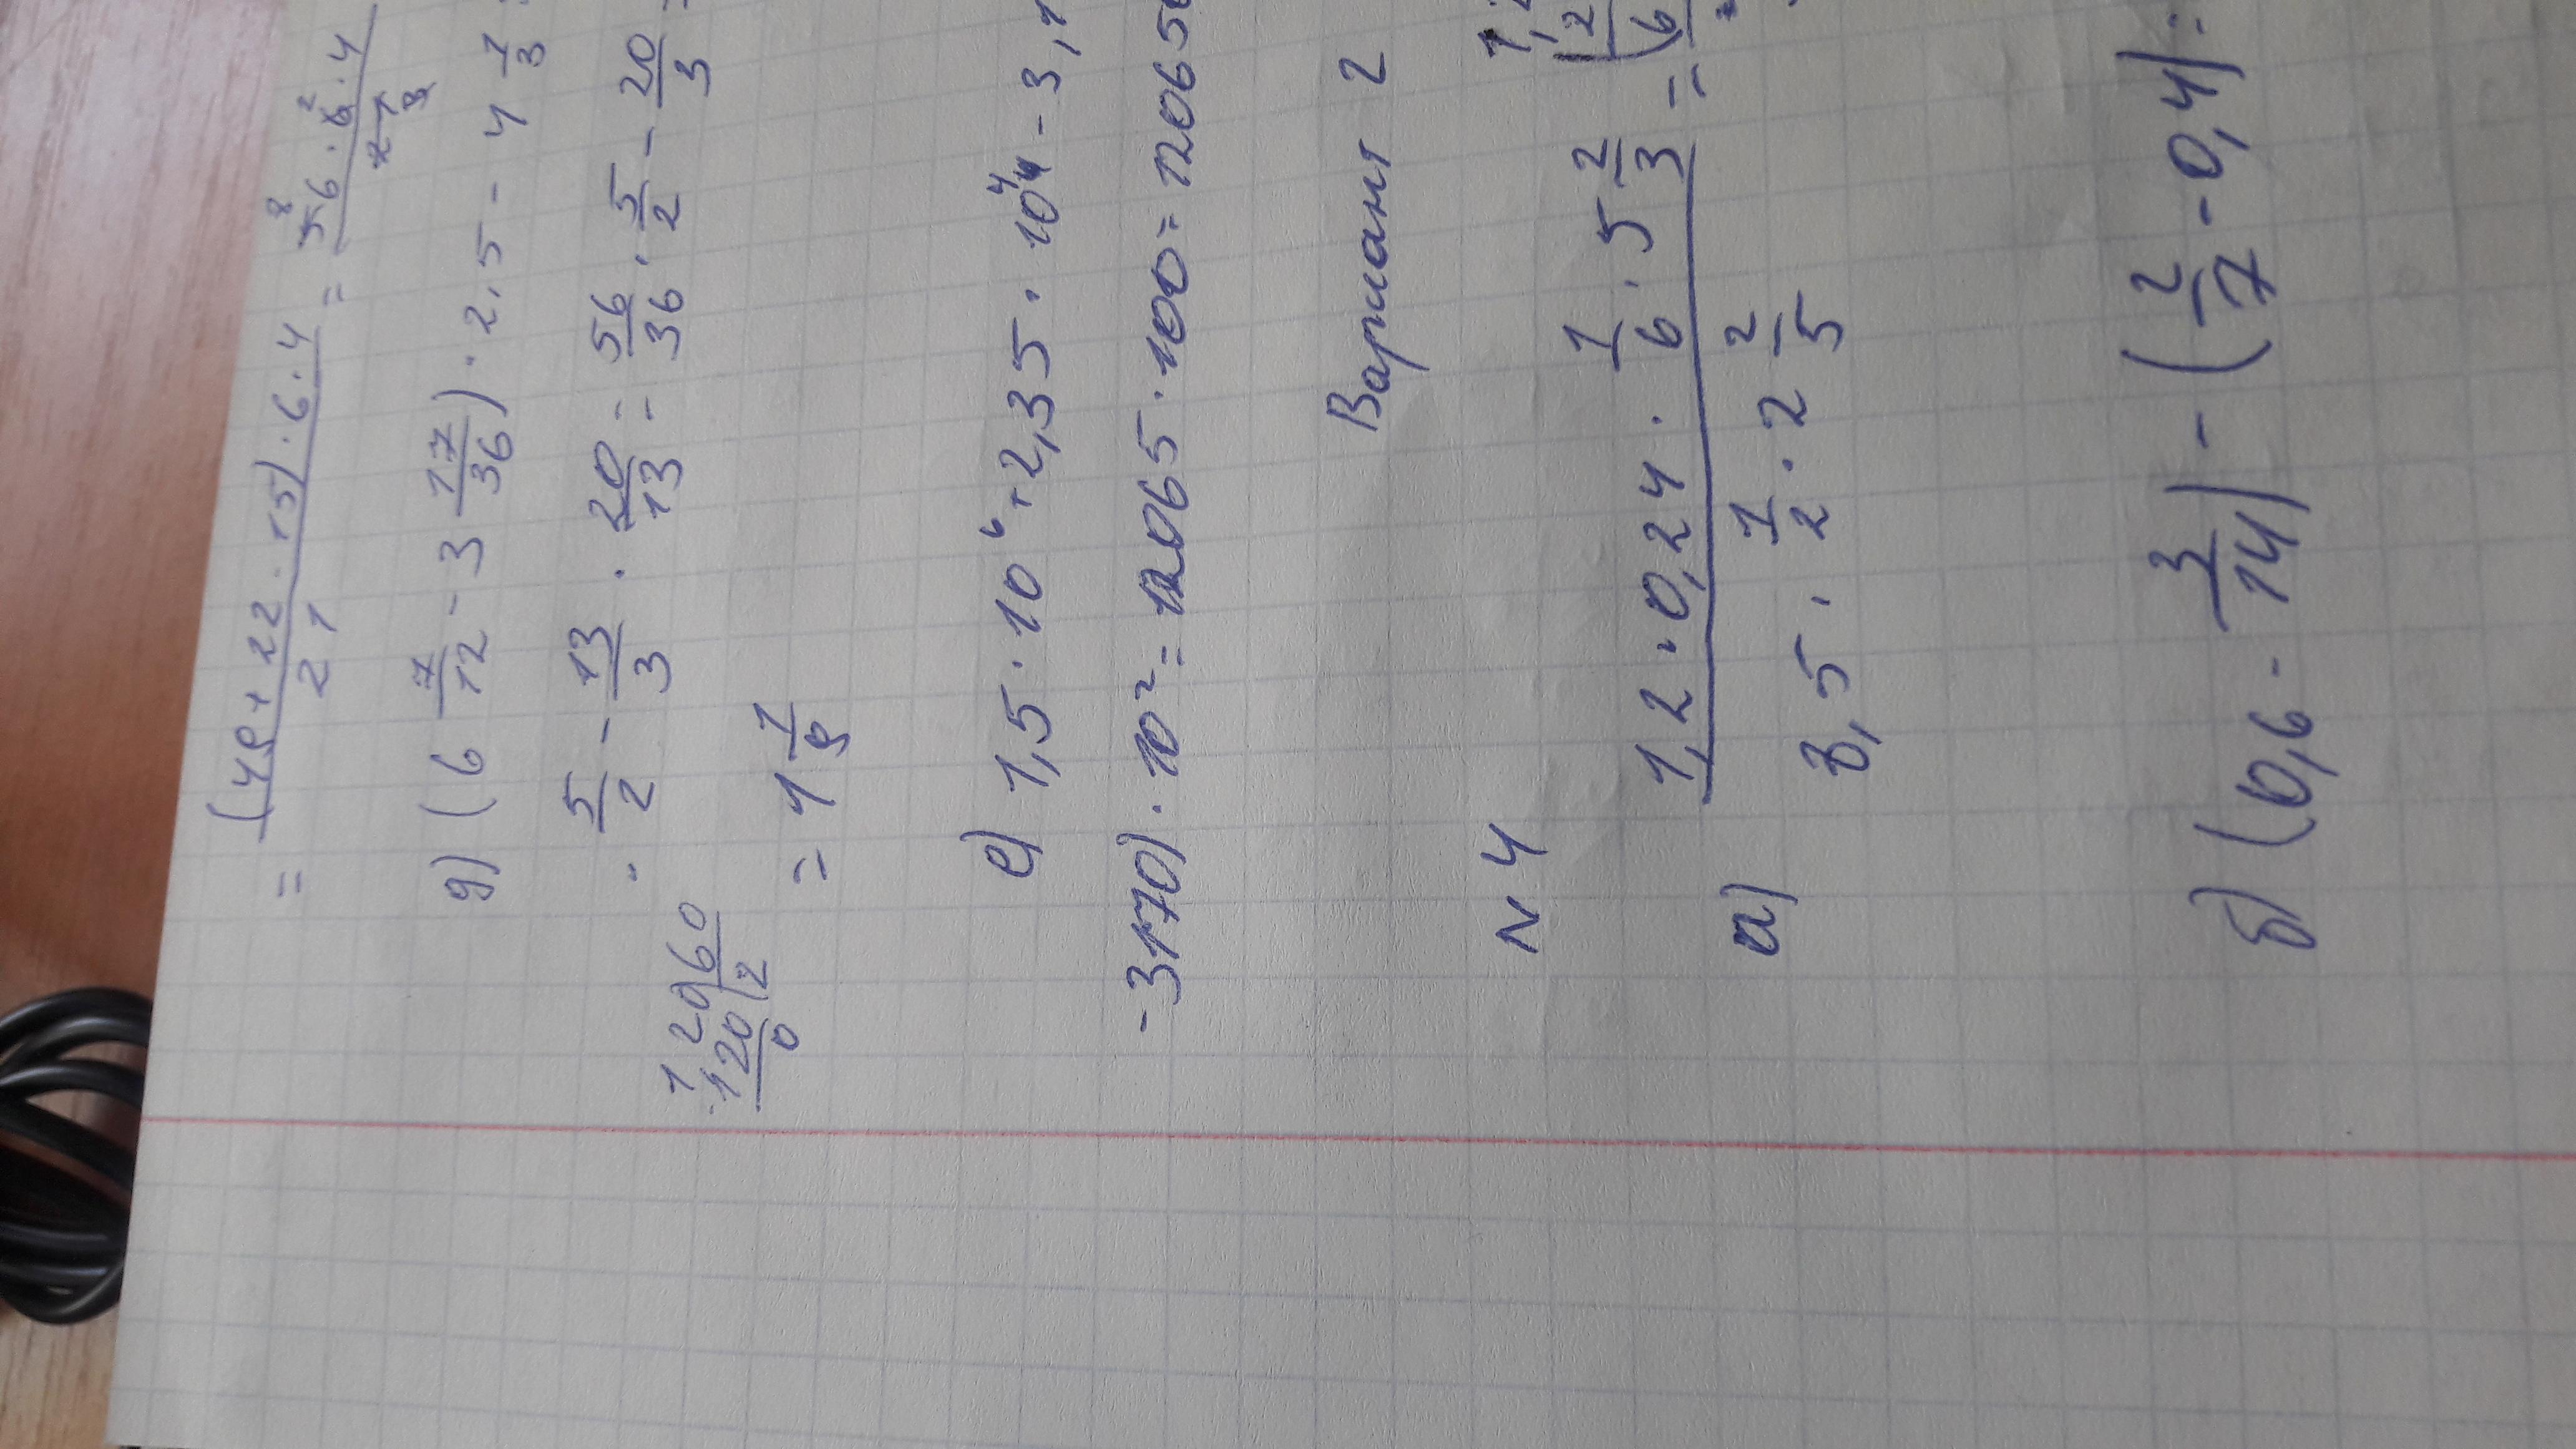 = (48 + 22 · 15) · 6 · 4 / 21 = 6 · 6 · 4
д) (6 7/12 - 3 17/36) · 2,5 - 4 1/3 :
· 5/2 - 13/3 · 20/13 = 56/36 · 5/2 - 20/3 =
= 1 1/9
1 20 | 60
-120 | 2
0
е) 1,5 · 10⁶ + 2,35 · 10⁴ - 3,1
-3170) · 10² = 12065 · 100 = 120650
Вариант 2
N 4
а) 1,2 · 0,24 · 1/6 · 5 2/3 / 3,5 · 1/2 · 2 2/5 =
б) (0,6 - 3/14) - (2/7 - 0,4) =